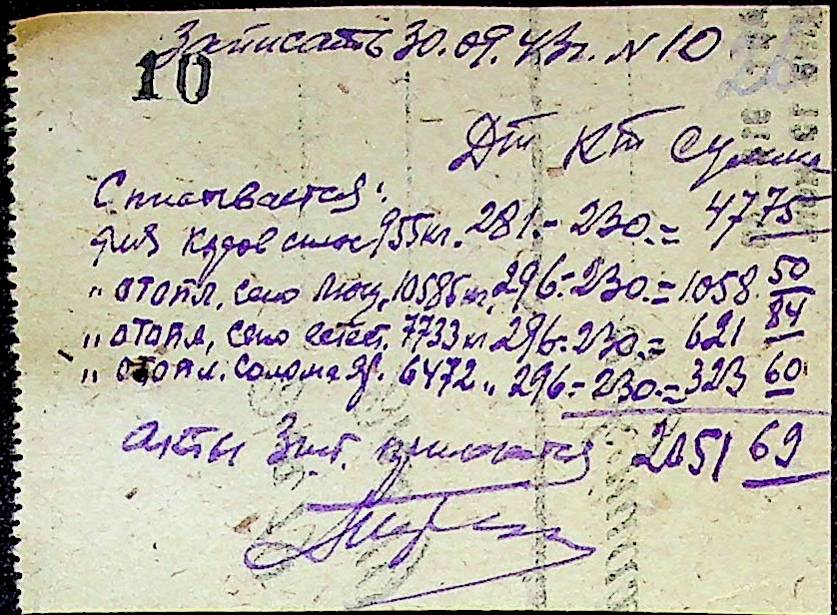 Записать 30.09.43г. N 10
10
Дт Кт Сумма
Списывается:
для Коров силос 955кг. 281.- 230.= 47 75
" отопл. сено люц. 10585кг. 296.- 230.= 1058 50
" отопл. сено естест. 7733кг 296.- 230.= 621 84
" отопл. солома яр. 6472 " 296.- 230.= 323 60
Акты 3шт. прилагаются 2051 69